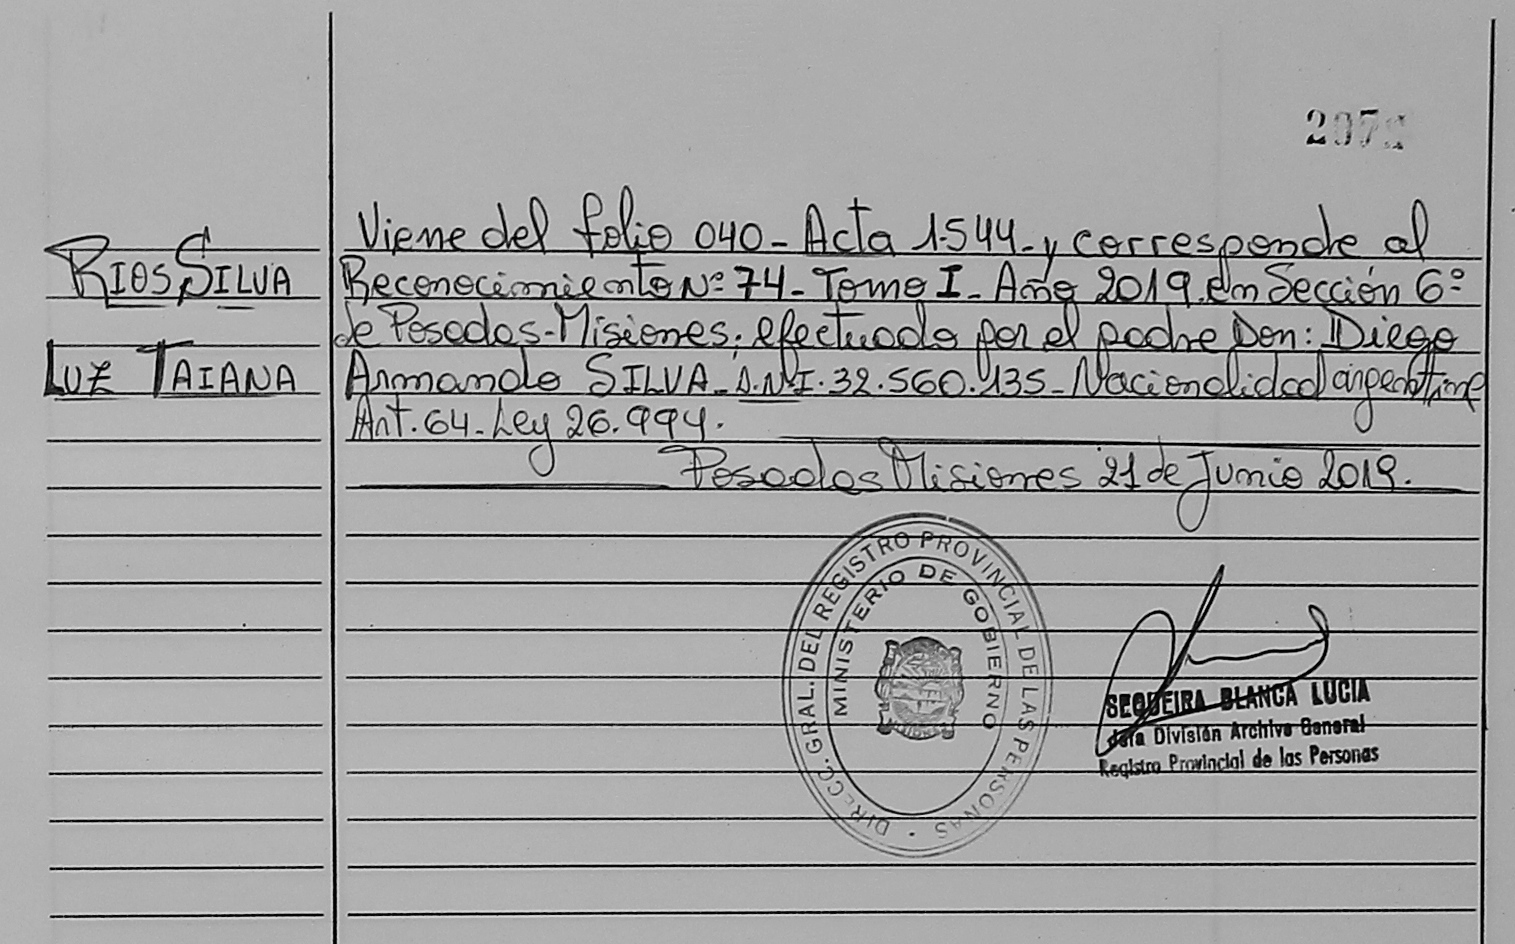 207
Viene del folio 040- Acta 1.544- y corresponde al
RIOS SILVA
Reconocimiento Nº 74- Tomo I- Año 2019. em Sección 6º
de Posadas-Misiones; efectuado por el padre Don: Diego
LUZ TAIANA
Armando SILVA- D.N.I. 32.560.135- Nacionalidad argentina
Art. 64- Ley 26.994.
Posadas Misiones 21 de Junio 2019.
DIRECC. GRAL. DEL REGISTRO PROVINCIAL DE LAS PERSONAS
MINISTERIO DE GOBIERNO
MISIONES
SEQUEIRA BLANCA LUCIA
Jefa División Archivo General
Registro Provincial de las Personas